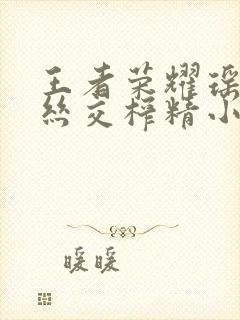 王者荣耀瑶
丝交榨精小
暖暖